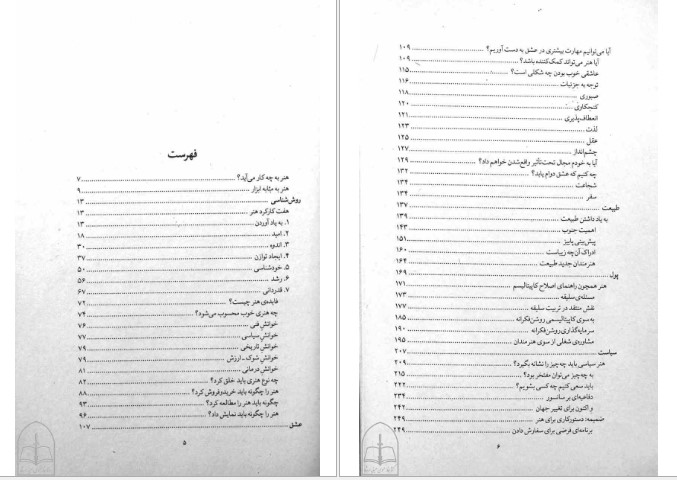 فهرست
هنر به چه کار می‌آید؟ ۷
هنر به مثابه ابزار ۹
روش‌شناسی ۱۳
هفت کارکرد هنر ۱۳
۱. به یاد آوردن ۱۳
۲. امید ۱۸
۳. اندوه ۳۰
۴. ایجاد توازن ۳۷
۵. خودشناسی ۵۰
۶. رشد ۵۶
۷. قدردانی ۶۷
فایده‌ی هنر چیست؟ ۷۲
چه هنری خوب محسوب می‌شود؟ ۷۴
خوانش فنی ۷۶
خوانش سیاسی ۷۷
خوانش تاریخی ۷۹
خوانش شوک ـ ارزش ۷۹
خوانش درمانی ۸۱
چه نوع هنری باید خلق کرد؟ ۸۲
هنر را چگونه باید خریدوفروش کرد؟ ۸۸
چگونه باید هنر را مطالعه کرد؟ ۹۳
هنر را چگونه باید نمایش داد؟ ۹۶
عشق ۱۰۷
۵
آیا می‌توانیم مهارت بیشتری در عشق به دست آوریم؟ ۱۰۹
آیا هنر می‌تواند کمک‌کننده باشد؟ ۱۰۹
عاشقی خوب بودن چه شکلی است؟ ۱۱۵
توجه به جزئیات ۱۱۶
صبوری ۱۱۸
کنجکاوی ۱۲۰
انعطاف‌پذیری ۱۲۱
لذت ۱۲۳
عقل ۱۲۵
چشم‌انداز ۱۲۷
آیا به خودم مجال تحت‌تأثیر واقع‌شدن خواهم داد؟ ۱۲۹
چه کنیم که عشق دوام یابد؟ ۱۳۲
شجاعت ۱۳۴
سفر ۱۳۴
طبیعت ۱۳۷
به یاد داشتن طبیعت ۱۳۹
اهمیت جنوب ۱۴۳
پیش‌بینی پاییز ۱۵۱
ادراک آن‌چه زیباست ۱۶۰
هنرمندان جدید طبیعت ۱۶۴
پول ۱۶۹
هنر همچون راهنمای اصلاح کاپیتالیسم ۱۷۱
مسئله‌ی سلیقه ۱۷۳
نقش منتقد در تربیت سلیقه ۱۷۷
به سوی کاپیتالیسمی روشن‌فکرانه ۱۸۵
سرمایه‌گذاری روشن‌فکرانه ۱۹۰
مشاوره‌ی شغلی از سوی هنرمندان ۱۹۵
سیاست ۲۰۷
هنر سیاسی باید چه چیز را نشانه بگیرد؟ ۲۰۹
به چه چیز می‌توان مفتخر بود؟ ۲۱۵
باید سعی کنیم چه کسی بشویم؟ ۲۲۲
دفاعیه‌ای بر سانسور ۲۳۴
و اکنون برای تغییر جهان ۲۴۲
ضمیمه: دستورکاری برای هنر ۲۴۹
برنامه‌ای فرضی برای سفارش دادن ۲۴۹
۶